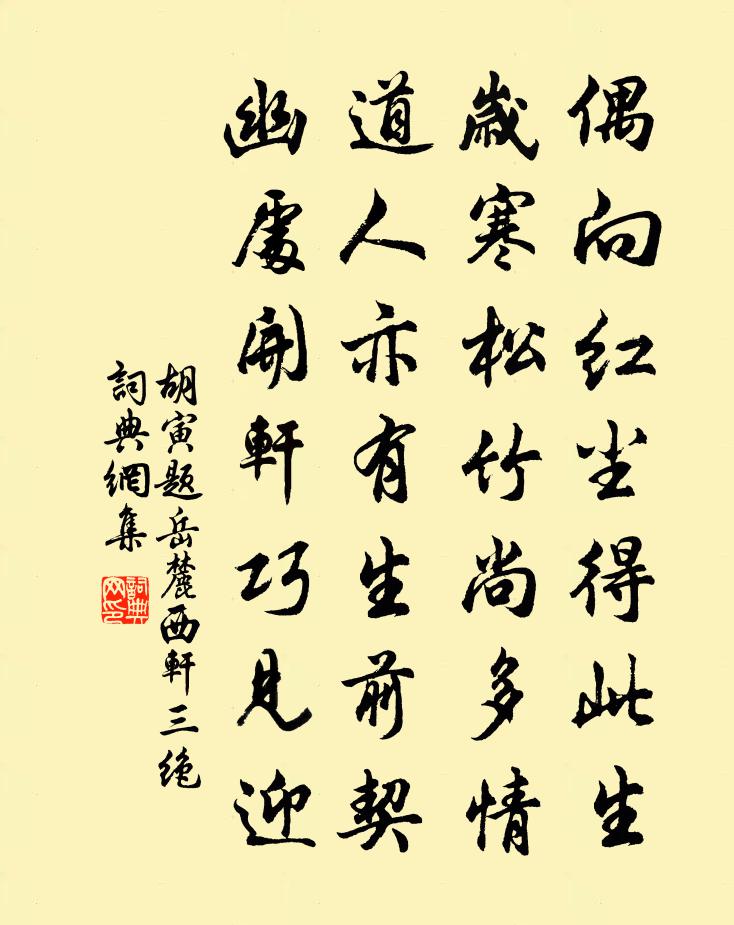 偶向红尘得此生
歲寒松竹尚多情
道人亦有生前契
幽處開軒巧見迎
胡寅题岳麓西軒三绝
詞典網集
詞典
网印